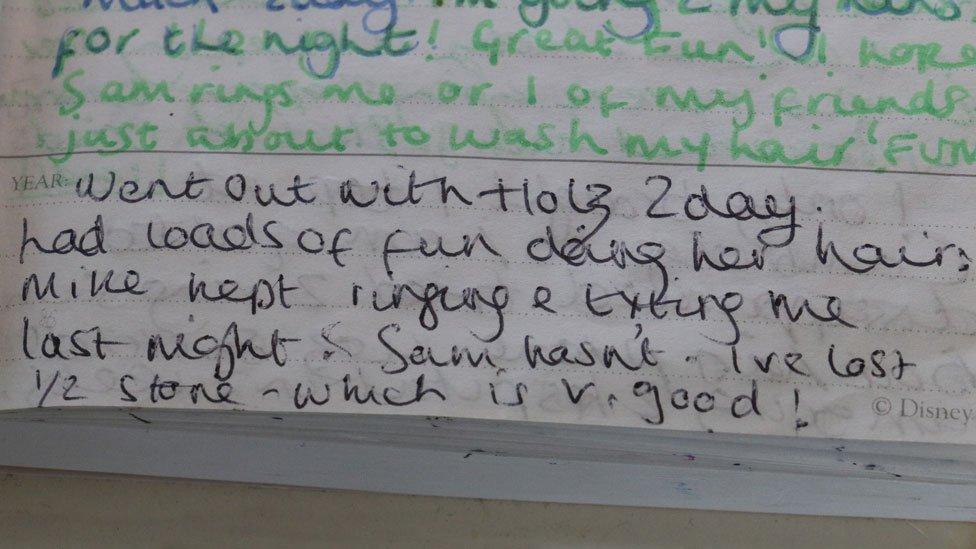 much 2day I'm going 2 my nans
for the night! Great Fun! I hope
Sam rings me or 1 of my friends
just about to wash my hair! FUN
YEAR: Went out with Holz 2day.
had loads of fun doing her hair.
Mike kept ringing & txting me
last night & Sam hasn't. I've lost
1/2 stone - which is v. good!
© Disney